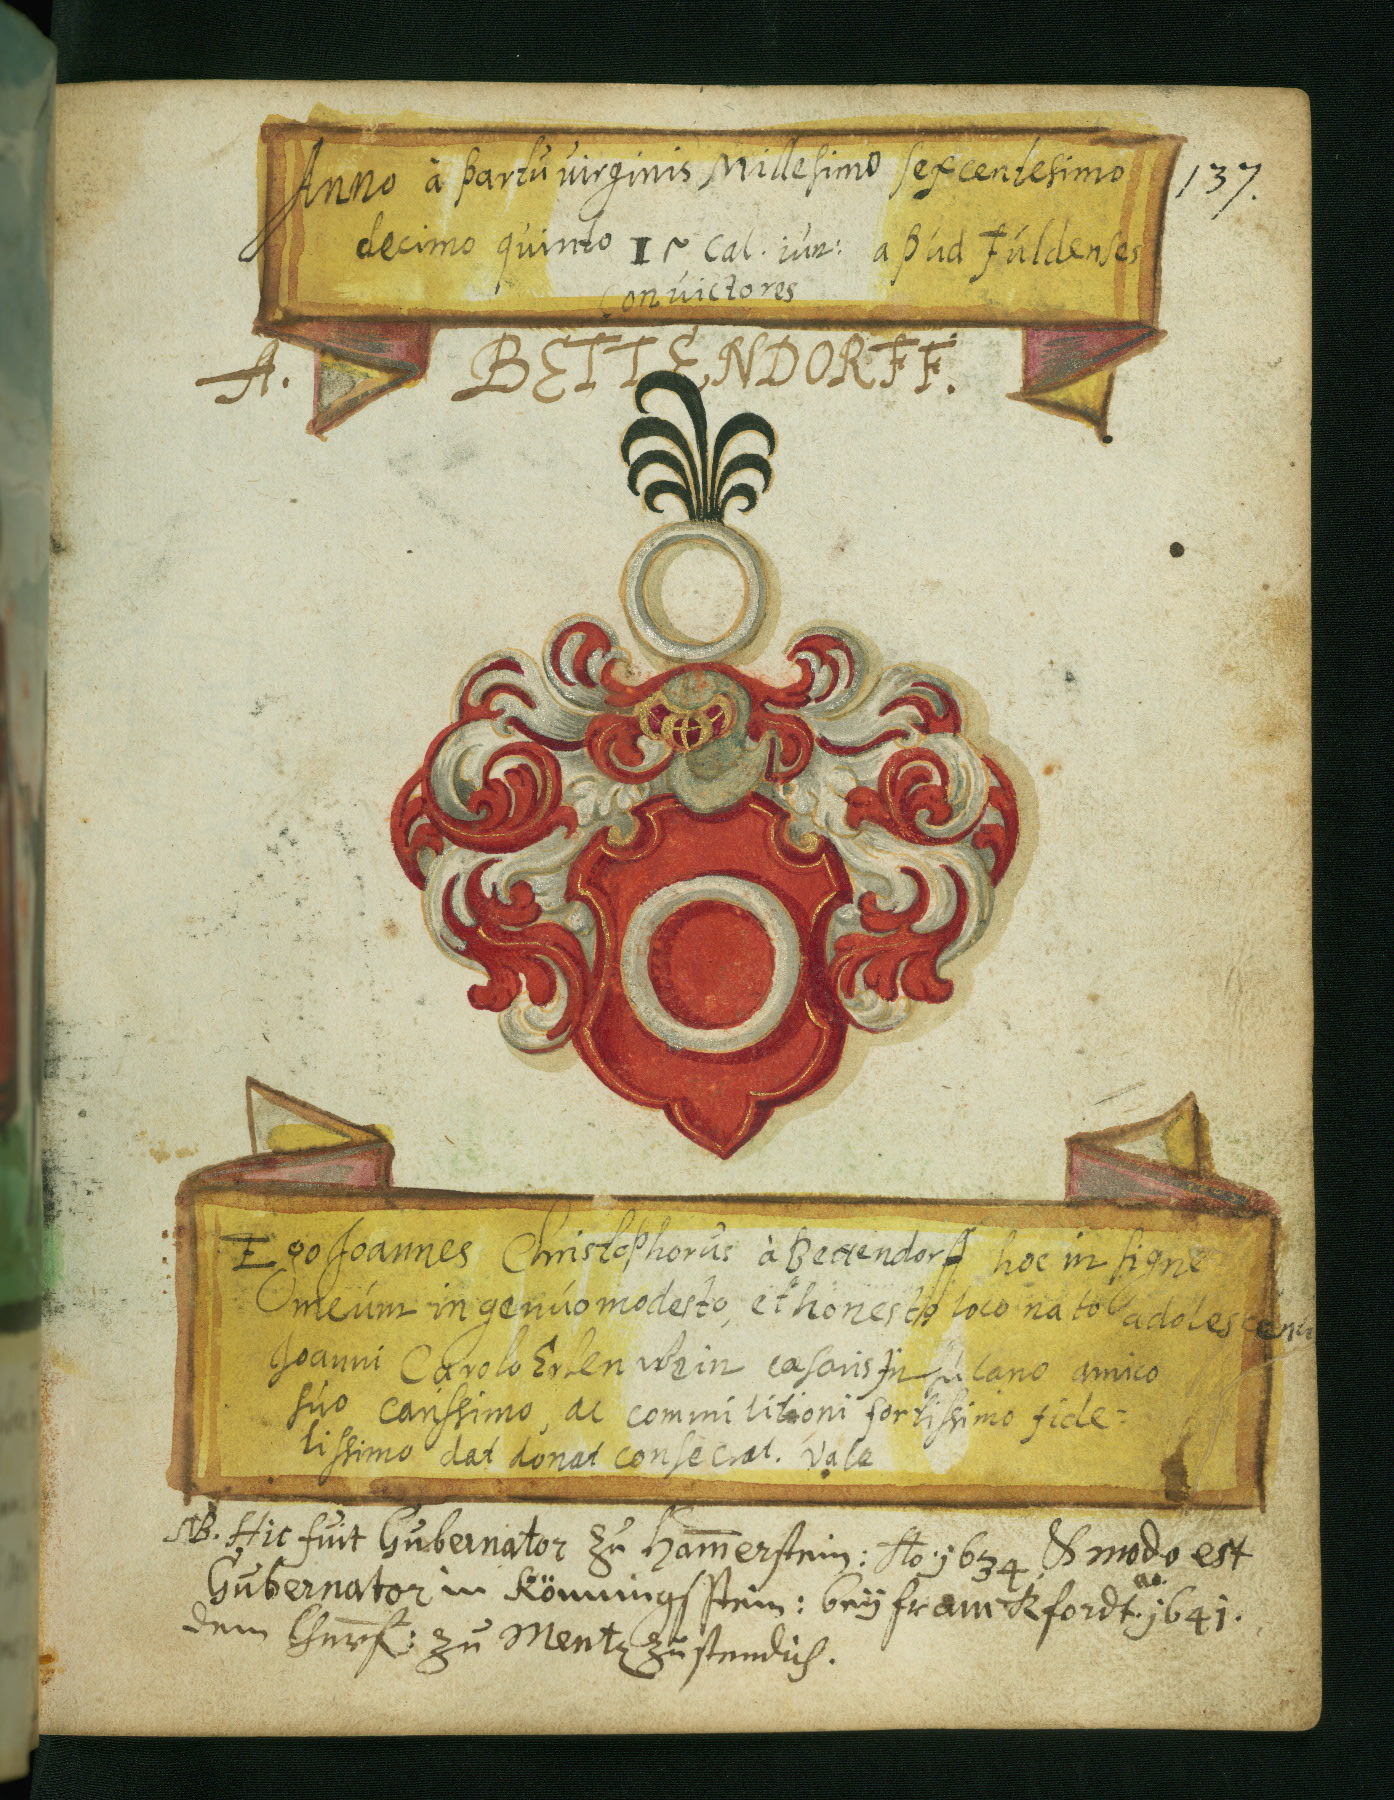 Anno à partu virginis Millesimo sexcentesimo
137.
decimo quinto 15 Cal. iun: apud Fuldenses
Convictores
A. BETTENDORFF.
Ego Joannes Christophorus à Bettendorff hoc insigne
meum ingenuo modesto, et honesto loco nato adolescenti
Joanni Carolo Erlenwein amico
suo carissimo, ac commilitioni fortissimo fide-
lissimo dat donat consecrat. Vale
NB. Hic fuit Gubernator zu Ham̄erstein: Ao. 1634 & modo est
Gubernator in Könningsstein: beÿ franckfordt. ao. 1641.
dem Churf: zu Mentz zustendich.